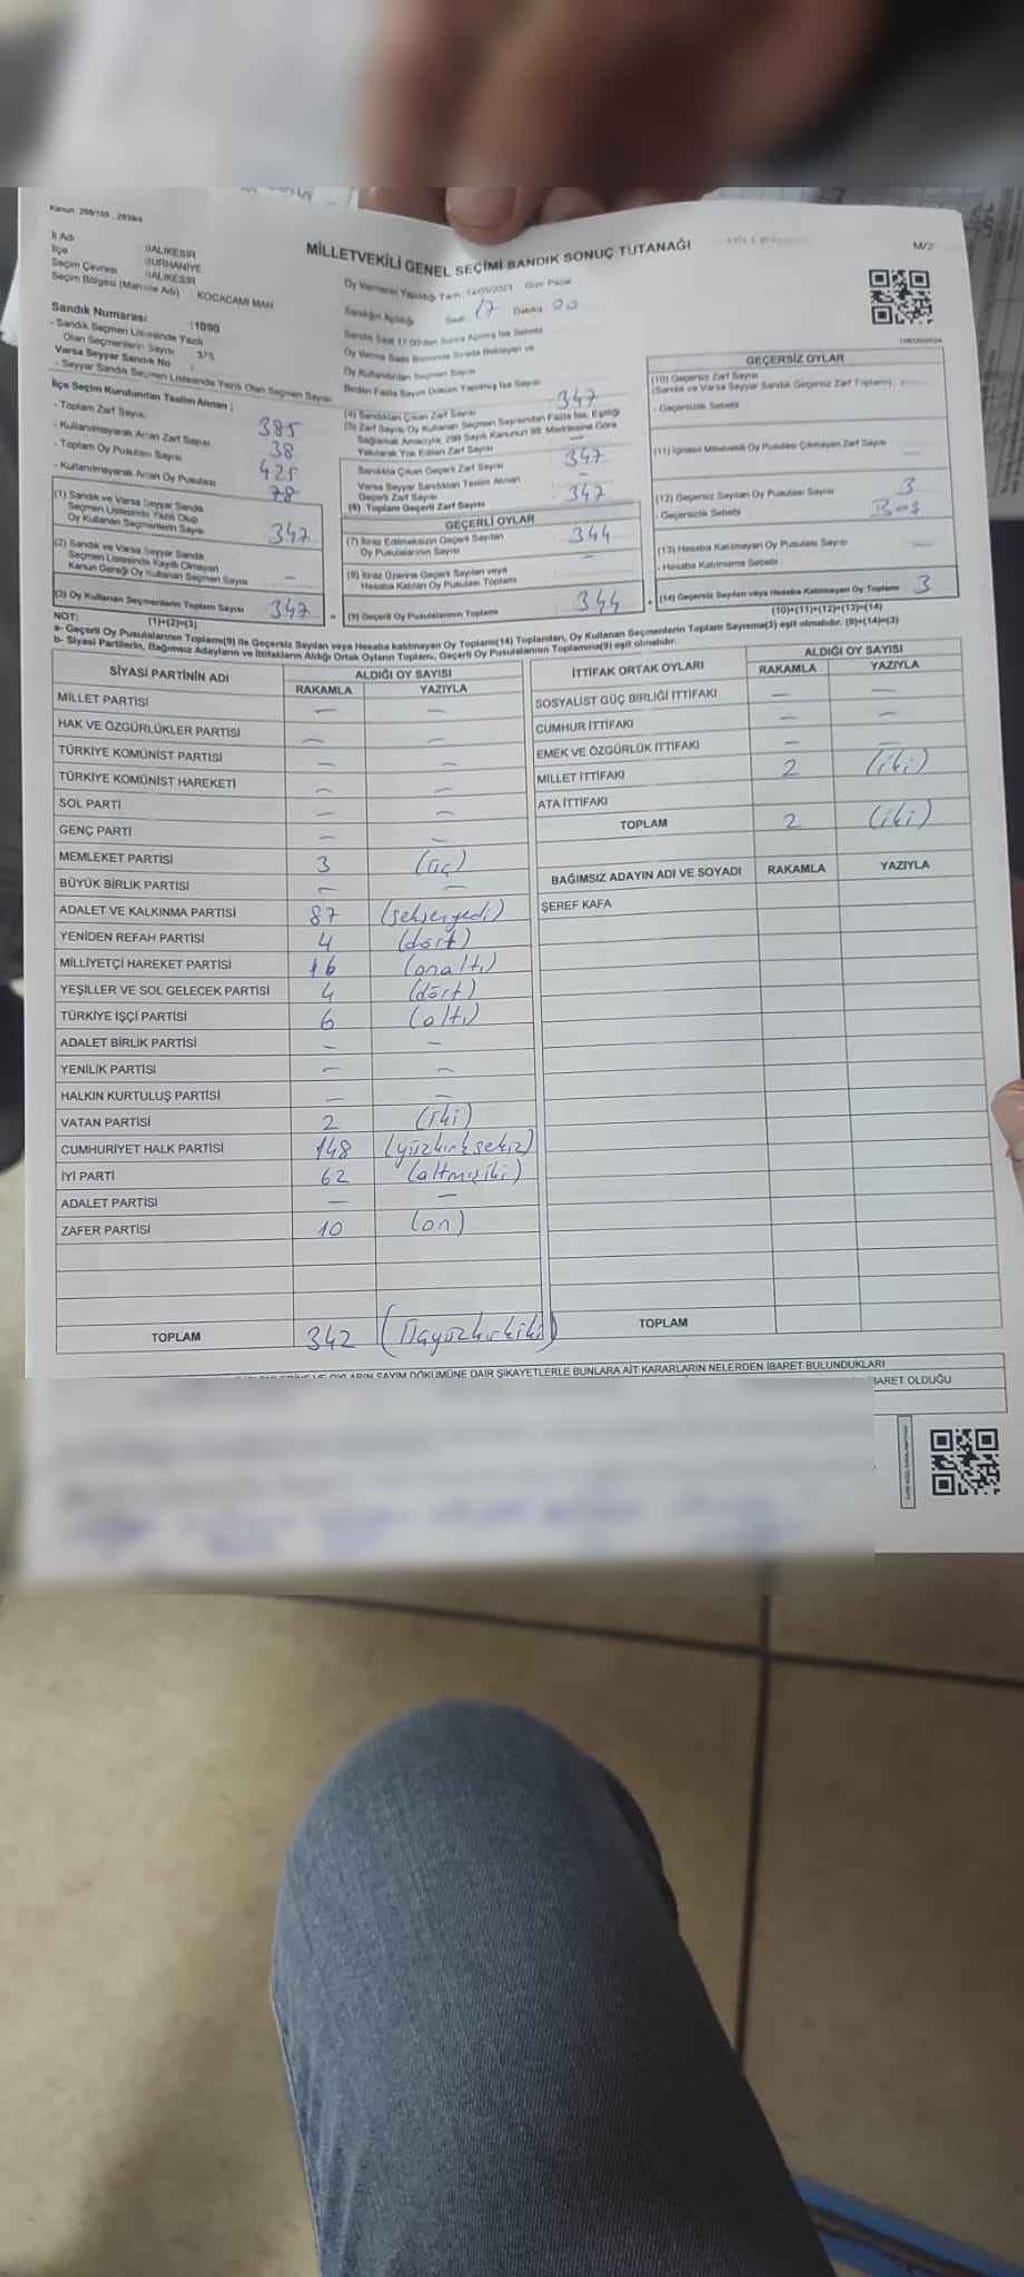 Kanun: 298/105 , 2839/4
MİLLETVEKİLİ GENEL SEÇİMİ SANDIK SONUÇ TUTANAĞI
M/2
İl Adı : BALIKESİR
İlçe : BURHANİYE
Seçim Çevresi : BALIKESİR
Seçim Bölgesi (Mahalle Adı) : KOCACAMİ MAH.
Sandık Numarası :1090
- Sandık Seçmen Listesinde Yazılı
Olan Seçmenlerin Sayısı : 375
Varsa Seyyar Sandık No :
- Seyyar Sandık Seçmen Listesinde Yazılı Olan Seçmen Sayısı
İlçe Seçim Kurulundan Teslim Alınan ;
- Toplam Zarf Sayısı 385
- Kullanılmayarak Artan Zarf Sayısı 38
- Toplam Oy Pusulası Sayısı 425
- Kullanılmayarak Artan Oy Pusulası 78
(1) Sandık ve Varsa Seyyar Sandık
Seçmen Listesinde Yazılı Olup
Oy Kullanan Seçmenlerin Sayısı 347
(2) Sandık ve Varsa Seyyar Sandık
Seçmen Listesinde Kayıtlı Olmayan
Kanun Gereği Oy Kullanan Seçmen Sayısı —
(3) Oy Kullanan Seçmenlerin Toplam Sayısı 347
(1)+(2)=(3)
Oy Vermenin Yapıldığı Tarih : 14/05/2023 Gün: Pazar
Sandığın Açıldığı Saat 17 Dakika 20
Sandık Saat 17.00'den Sonra Açılmış İse Sebebi
Oy Kullandırılan Seçmen Sayısı
Birden Fazla Sayım Döküm Yapılmış İse Sayısı
(4) Sandıktan Çıkan Zarf Sayısı 347
(5) Zarf Sayısı Oy Kullanan Seçmen Sayısından Fazla İse, Eşitliği
Sağlamak Amacıyla, 298 Sayılı Kanunun 98. Maddesine Göre
Yakılarak Yok Edilen Zarf Sayısı —
Sandıkta Çıkan Geçerli Zarf Sayısı 347
Varsa Seyyar Sandıktan Teslim Alınan
Geçerli Zarf Sayısı —
(6) Toplam Geçerli Zarf Sayısı 347
GEÇERLİ OYLAR
(7) İtiraz Edilmeksizin Geçerli Sayılan
Oy Pusulalarının Sayısı 344
(8) İtiraz Üzerine Geçerli Sayılan veya
Hesaba Katılan Oy Pusulası Toplamı —
= (9) Geçerli Oy Pusulalarının Toplamı 344
GEÇERSİZ OYLAR
(10) Geçersiz Zarf Sayısı
(Sandık ve Varsa Seyyar Sandık Geçersiz Zarf Toplamı)
- Geçersizlik Sebebi
(11) İçinden Milletvekili Oy Pusulası Çıkmayan Zarf Sayısı —
(12) Geçersiz Sayılan Oy Pusulası Sayısı 3
- Geçersizlik Sebebi Boş
(13) Hesaba Katılmayan Oy Pusulası Sayısı —
- Hesaba Katılmama Sebebi
+ (14) Geçersiz Sayılan veya Hesaba Katılmayan Oy Toplamı 3
(10)+(11)+(12)+(13)=(14)
NOT:
a- Geçerli Oy Pusulalarının Toplamı(9) ile Geçersiz Sayılan veya Hesaba katılmayan Oy Toplamı(14) Toplamları, Oy Kullanan Seçmenlerin Toplam Sayısına(3) eşit olmalıdır. (9)+(14)=(3)
b- Siyasi Partilerin, Bağımsız Adayların ve İttifakların Aldığı Ortak Oyların Toplamı, Geçerli Oy Pusulalarının Toplamına(9) eşit olmalıdır.
SİYASİ PARTİNİN ADI ALDIĞI OY SAYISI
RAKAMLA YAZIYLA
MİLLET PARTİSİ — —
HAK VE ÖZGÜRLÜKLER PARTİSİ — —
TÜRKİYE KOMÜNİST PARTİSİ — —
TÜRKİYE KOMÜNİST HAREKETİ — —
SOL PARTİ — —
GENÇ PARTİ — —
MEMLEKET PARTİSİ 3 (üç)
BÜYÜK BİRLİK PARTİSİ — —
ADALET VE KALKINMA PARTİSİ 87 (seksenyedi)
YENİDEN REFAH PARTİSİ 4 (dört)
MİLLİYETÇİ HAREKET PARTİSİ 16 (onaltı)
YEŞİLLER VE SOL GELECEK PARTİSİ 4 (dört)
TÜRKİYE İŞÇİ PARTİSİ 6 (altı)
ADALET BİRLİK PARTİSİ — —
YENİLİK PARTİSİ — —
HALKIN KURTULUŞ PARTİSİ — —
VATAN PARTİSİ 2 (iki)
CUMHURİYET HALK PARTİSİ 148 (yüzkırksekiz)
İYİ PARTİ 62 (altmışiki)
ADALET PARTİSİ — —
ZAFER PARTİSİ 10 (on)
TOPLAM 342 (Üçyüzkırkiki)
İTTİFAK ORTAK OYLARI ALDIĞI OY SAYISI
RAKAMLA YAZIYLA
SOSYALİST GÜÇ BİRLİĞİ İTTİFAKI — —
CUMHUR İTTİFAKI — —
EMEK VE ÖZGÜRLÜK İTTİFAKI — —
MİLLET İTTİFAKI 2 (iki)
ATA İTTİFAKI
TOPLAM 2 (iki)
BAĞIMSIZ ADAYIN ADI VE SOYADI RAKAMLA YAZIYLA
ŞEREF KAFA
TOPLAM
SAYIM DÖKÜMÜNE DAİR ŞİKAYETLERLE BUNLARA AİT KARARLARIN NELERDEN İBARET BULUNDUKLARI
İBARET OLDUĞU